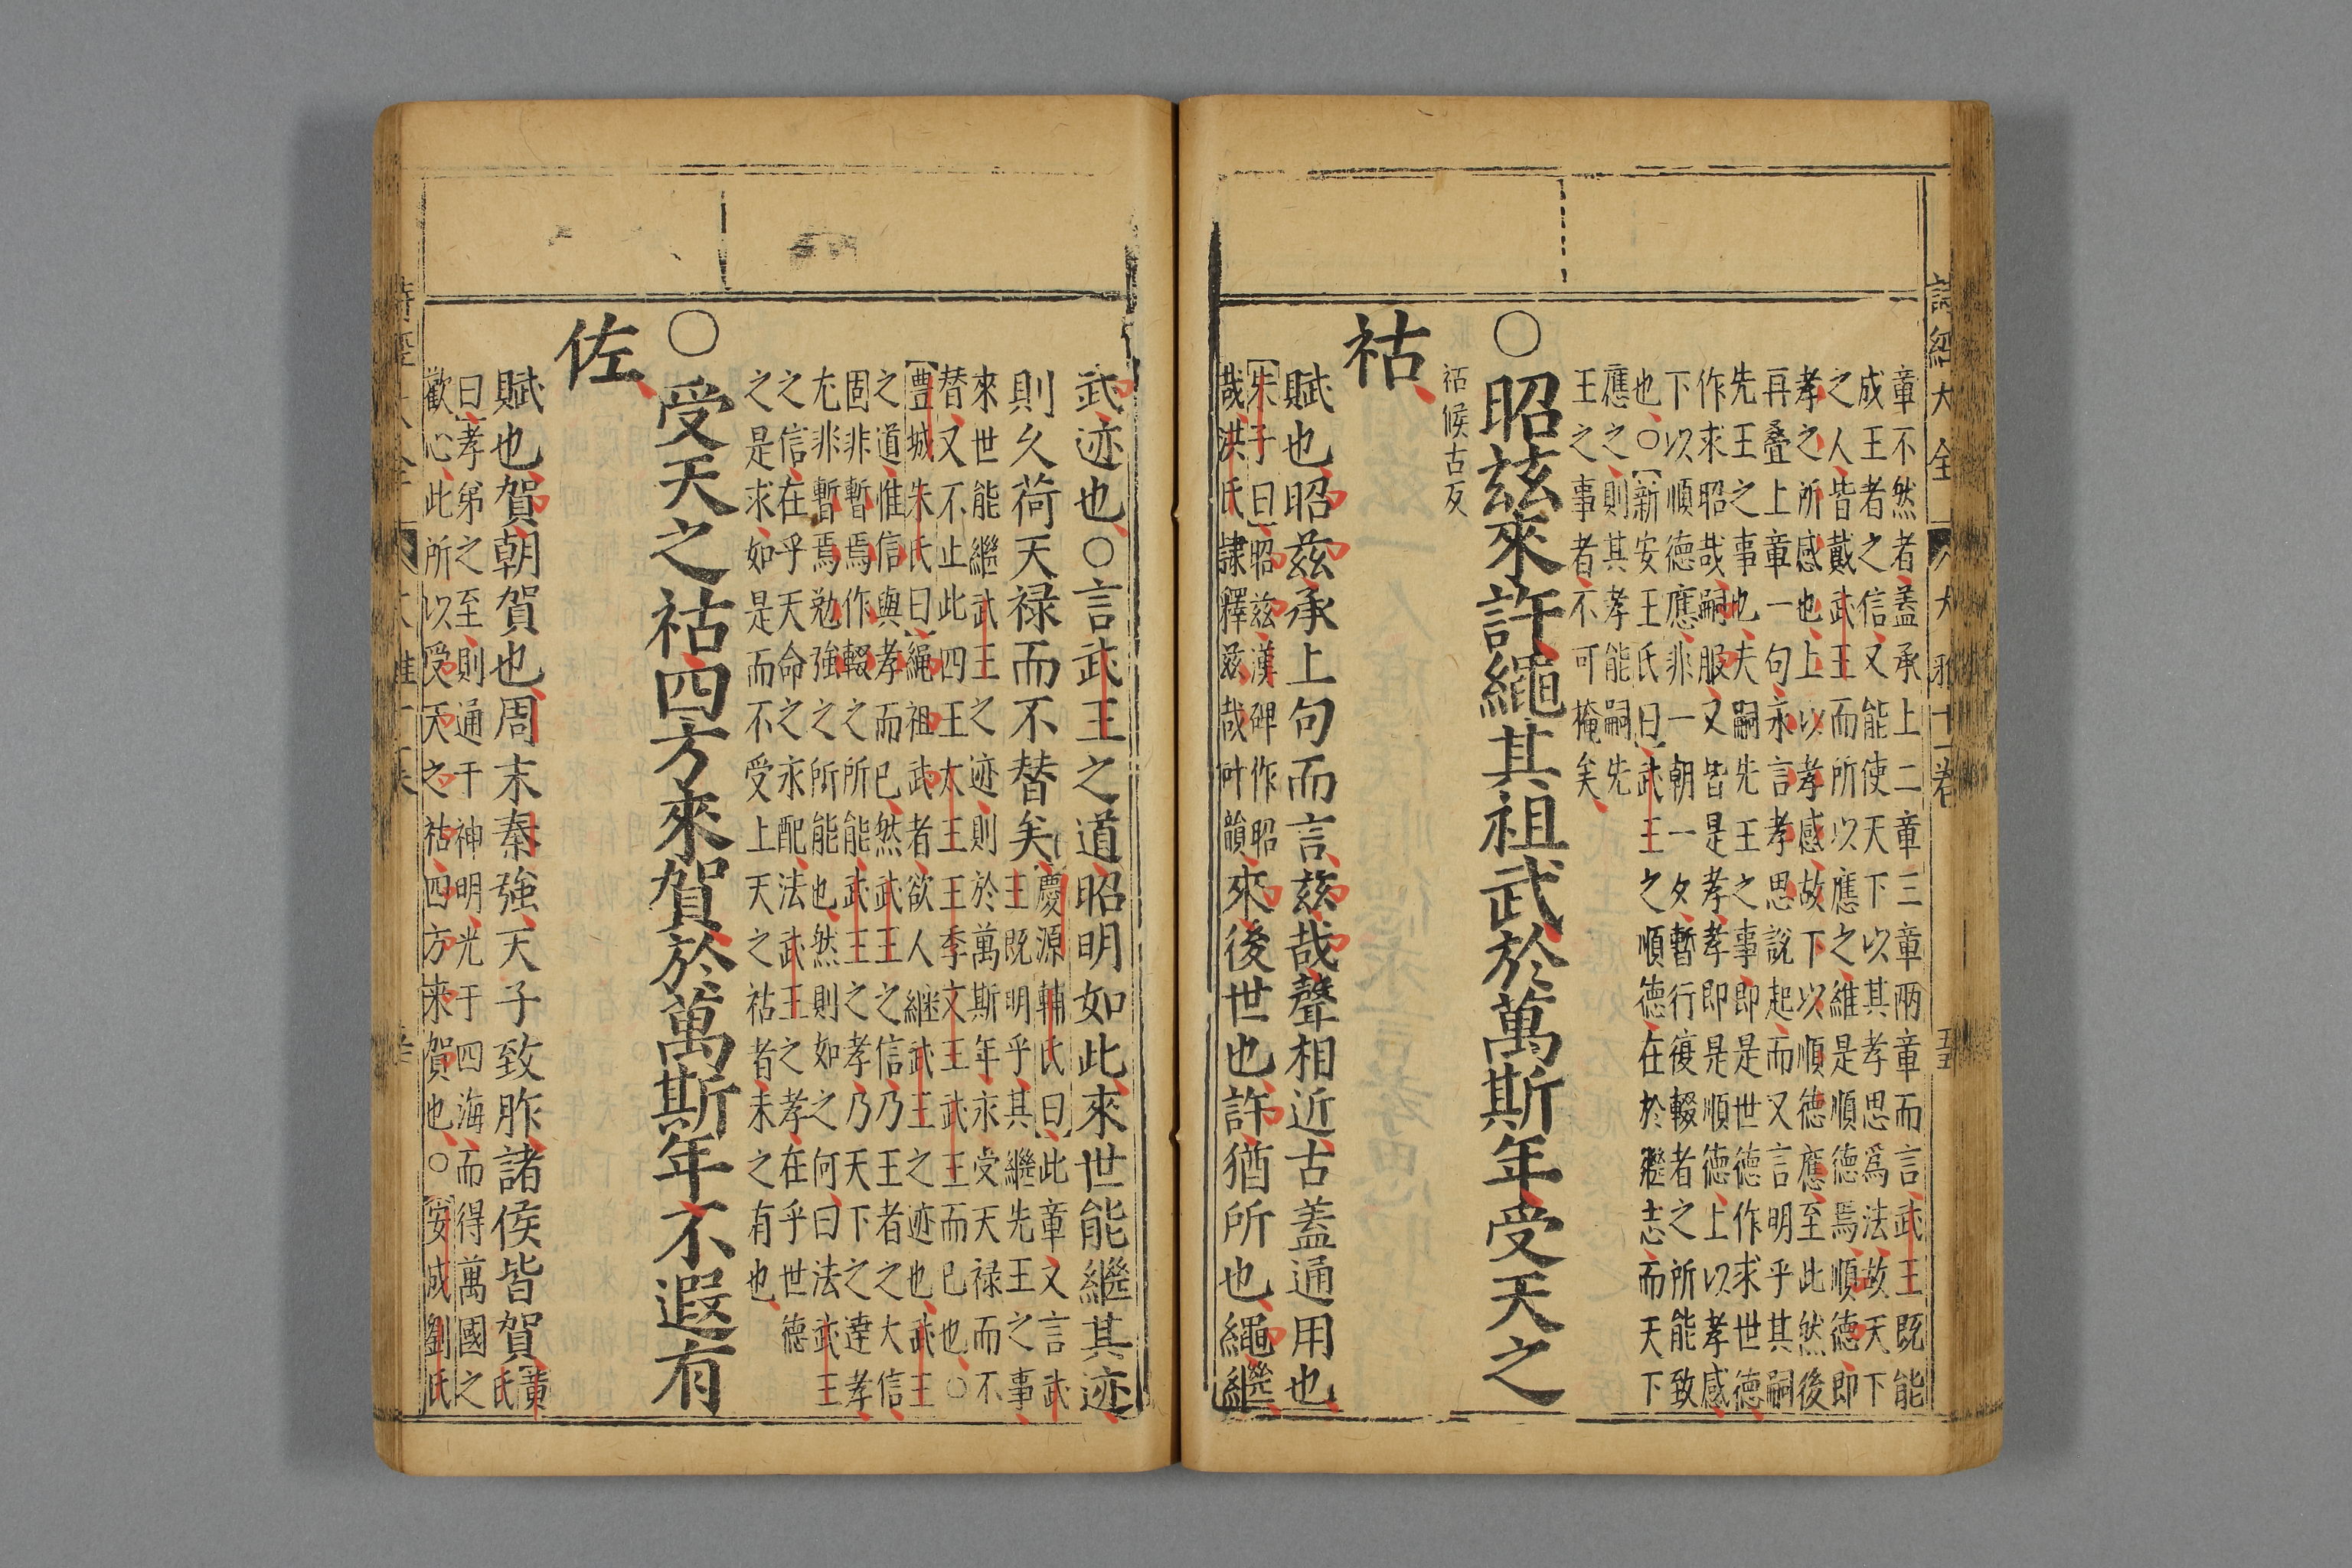 詩經大全
大雅十六卷
章不然者蓋承上二章三章兩章而言武王既能
成王者之信又能使天下以其孝思爲法故天下
之人皆戴武王而所以應之維是順德焉順德即
孝之所感也上以孝感故下以順德應至此然後
再疊上章一句永言孝思說起而又言明乎其嗣
先王之事也夫嗣先王之事即是世德作求世德
作求昭哉嗣服又皆是孝孝即是順德上以孝感
下以順德應非一朝一夕暫行復輟者之所能致
也○新安王氏曰武王之順德在於繼志而天下
應之則其孝能嗣先
王之事者不可掩矣
○昭茲來許繩其祖武於萬斯年受天之
祜候古反
祜
賦也昭茲承上句而言茲哉聲相近古蓋通用也
朱子曰昭茲漢碑作昭
哉洪氏隷釋茲哉叶韻
來後世也許猶所也繩繼
武迹也○言武王之道昭明如此來世能繼其迹
則久荷天禄而不替矣
慶源輔氏曰此章又言武
王既明乎其繼先王之事
來世能繼武王之迹則於萬斯年永受天禄而不
替又不止此四王太王王季文王武王而已也○
豐城朱氏曰繩祖武者欲人繼武王之迹也武王
之道惟信與孝而已然武王之信乃王者之大信
固非暫焉作輟之所能武王之孝乃天下之達孝
尢非暫焉勉強之所能也然則如之何曰法武王
之信在乎天命之永配法武王之孝在乎世德
之是求如是而不受上天之祜者未之有也
○受天之祜四方來賀於萬斯年不遐有
佐
賦也賀朝賀也周末秦強天子致胙諸侯皆賀
黃氏
曰孝弟之至則通于神明光于四海而得萬國之
歡心此所以受天之祜四方來賀也○安成劉氏